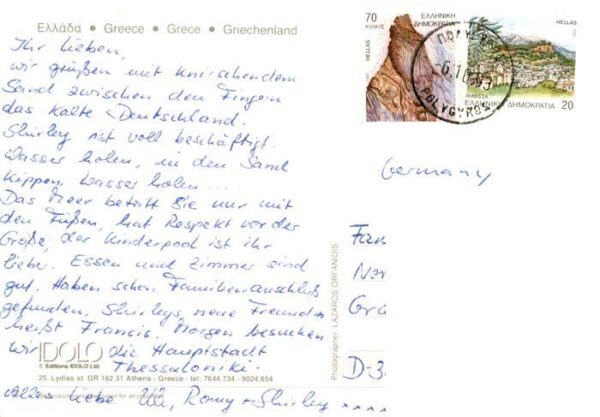 Ελλάδα • Greece • Grece • Griechenland
Ihr Lieben,
wir grüßen mit knirschendem
Sand zwischen den Fingern
das kalte Deutschland.
Shirley ist voll beschäftigt.
Wasser holen, in den Sand
kippen, Wasser holen ....
Das Meer betritt Sie nur mit
den Füßen, hat Respekt vor der
Größe, der Kinderpool ist ihr
lieber. Essen und Zimmer sind
gut. Haben schon Familienanschluß
gefunden, Shirleys neue Freundin
heißt Francis. Morgen besuchen
wir die Hauptstadt
Thessaloniki.
IDOLO
© Editions IDOLO Ltd
25. Lydias st. GR 162 31 Athens - Greece - tel: 7644.734 - 9024.654
Alles Liebe Uli, Romy + Shirley
70
ΕΛΛΗΝΙΚΗ
ΔΗΜΟΚΡΑΤΙΑ
ΚΙΛΚΙΣ
HELLAS
HELLAS
ΑΜΦΙΣΣΑ
ΕΛΛΗΝΙΚΗ ΔΗΜΟΚΡΑΤΙΑ 20
POLYGYROS
Germany
Photographer: LAZAROS ORFANIDIS
Fam
D-3